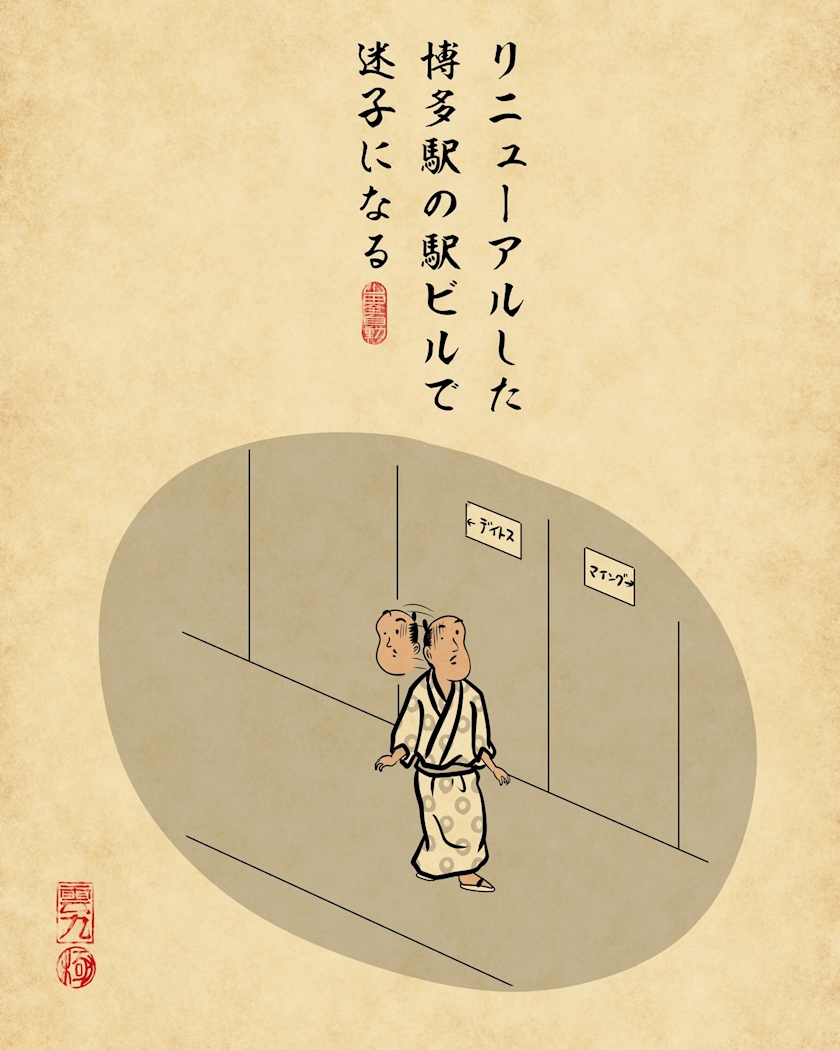 リニューアルした
博多駅の駅ビルで
迷子になる
←デイトス
マイング→